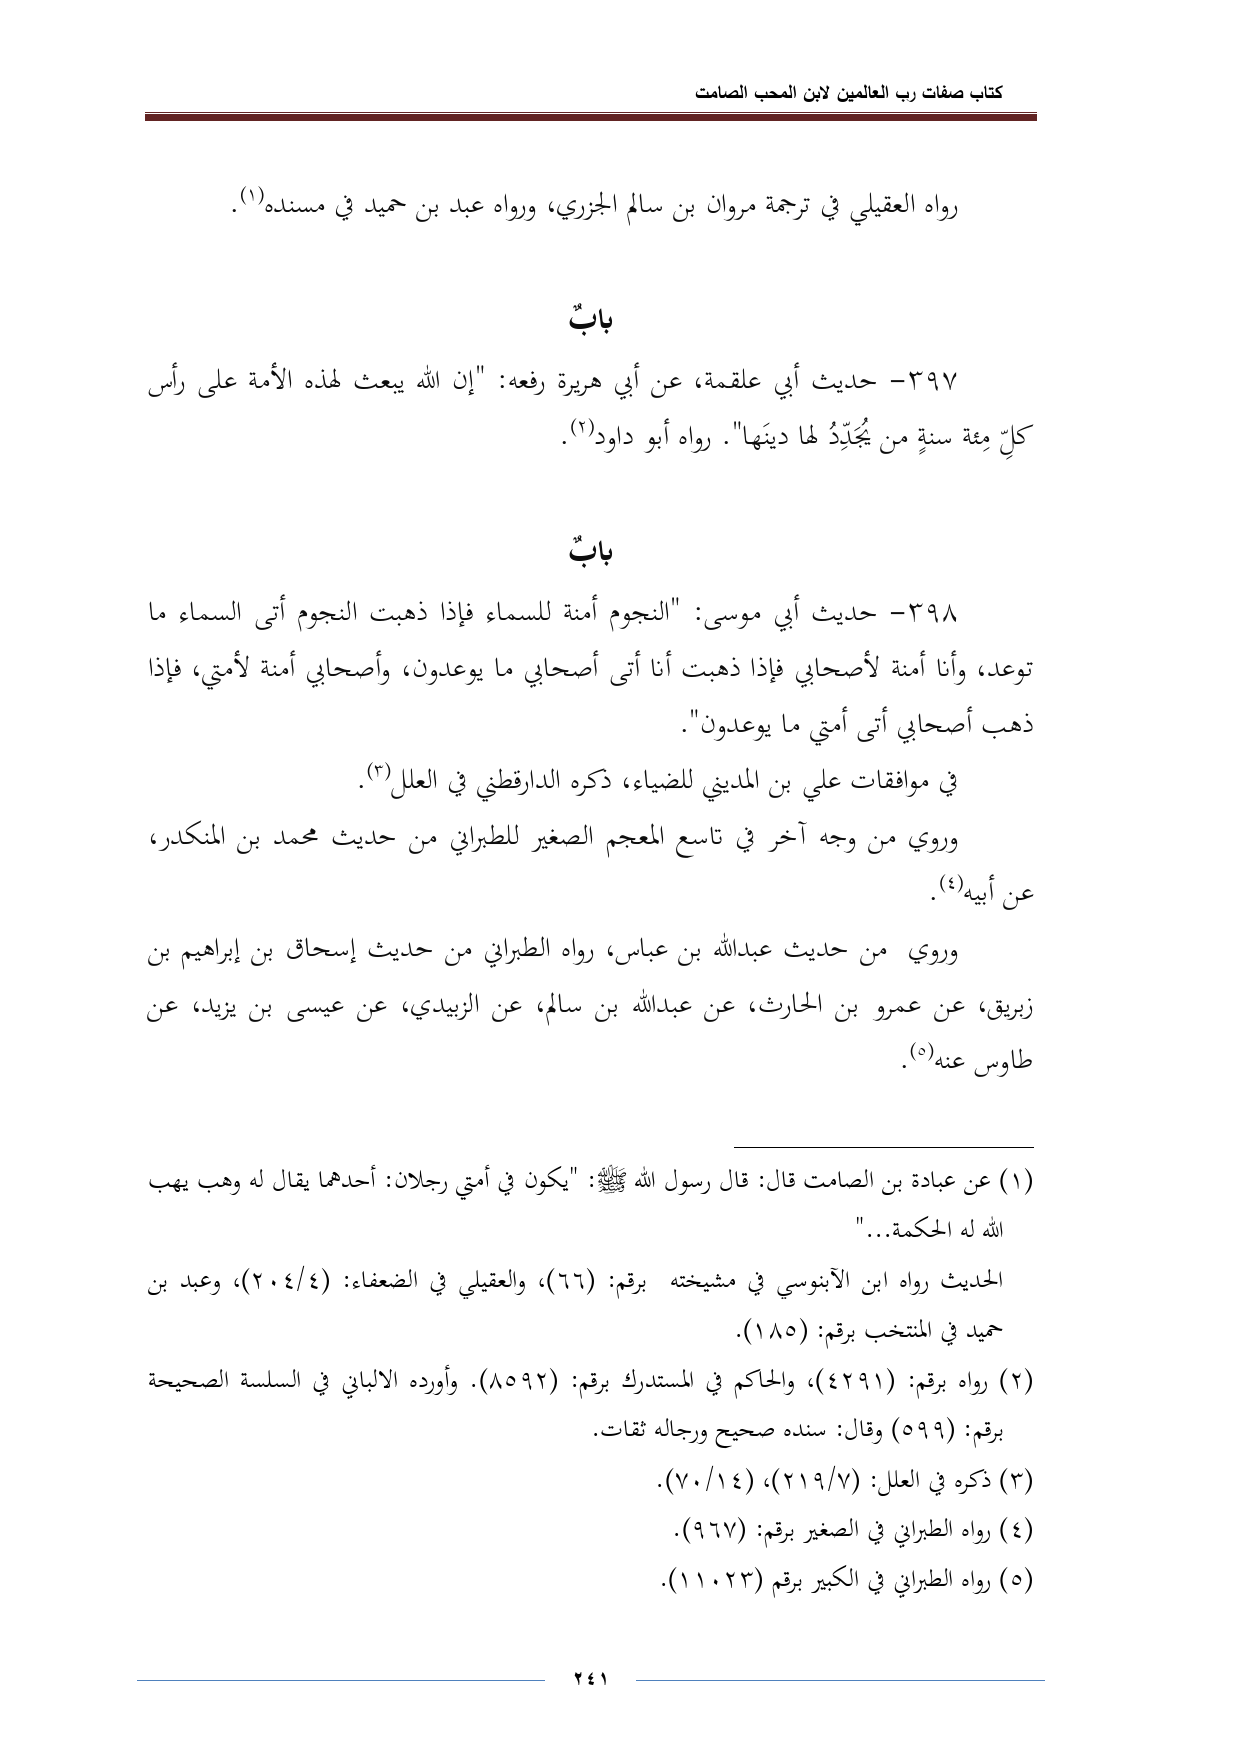 كتاب صفات رب العالمين لابن المحب الصامت
رواه العقيلي في ترجمة مروان بن سالم الجزري، ورواه عبد بن حميد في مسنده(١).
بابٌ
٣٩٧- حديث أبي علقمة، عن أبي هريرة رفعه: "إن الله يبعث لهذه الأمة على رأس
كلِّ مِئة سنةٍ من يُجَدِّدُ لها دينَها". رواه أبو داود(٢).
بابٌ
٣٩٨- حديث أبي موسى: "النجوم أمنة للسماء فإذا ذهبت النجوم أتى السماء ما
توعد، وأنا أمنة لأصحابي فإذا ذهبت أنا أتى أصحابي ما يوعدون، وأصحابي أمنة لأمتي، فإذا
ذهب أصحابي أتى أمتي ما يوعدون".
في موافقات علي بن المديني للضياء، ذكره الدارقطني في العلل(٣).
وروي من وجه آخر في تاسع المعجم الصغير للطبراني من حديث محمد بن المنكدر،
عن أبيه(٤).
وروي من حديث عبدالله بن عباس، رواه الطبراني من حديث إسحاق بن إبراهيم بن
زبريق، عن عمرو بن الحارث، عن عبدالله بن سالم، عن الزبيدي، عن عيسى بن يزيد، عن
طاوس عنه(٥).
(١) عن عبادة بن الصامت قال: قال رسول الله ﷺ: "يكون في أمتي رجلان: أحدهما يقال له وهب يهب
الله له الحكمة..."
الحديث رواه ابن الآبنوسي في مشيخته برقم: (٦٦)، والعقيلي في الضعفاء: (٢٠٤/٤)، وعبد بن
حميد في المنتخب برقم: (١٨٥).
(٢) رواه برقم: (٤٢٩١)، والحاكم في المستدرك برقم: (٨٥٩٢). وأورده الالباني في السلسة الصحيحة
برقم: (٥٩٩) وقال: سنده صحيح ورجاله ثقات.
(٣) ذكره في العلل: (٢١٩/٧)، (٧٠/١٤).
(٤) رواه الطبراني في الصغير برقم: (٩٦٧).
(٥) رواه الطبراني في الكبير برقم (١١٠٢٣).
٢٤١